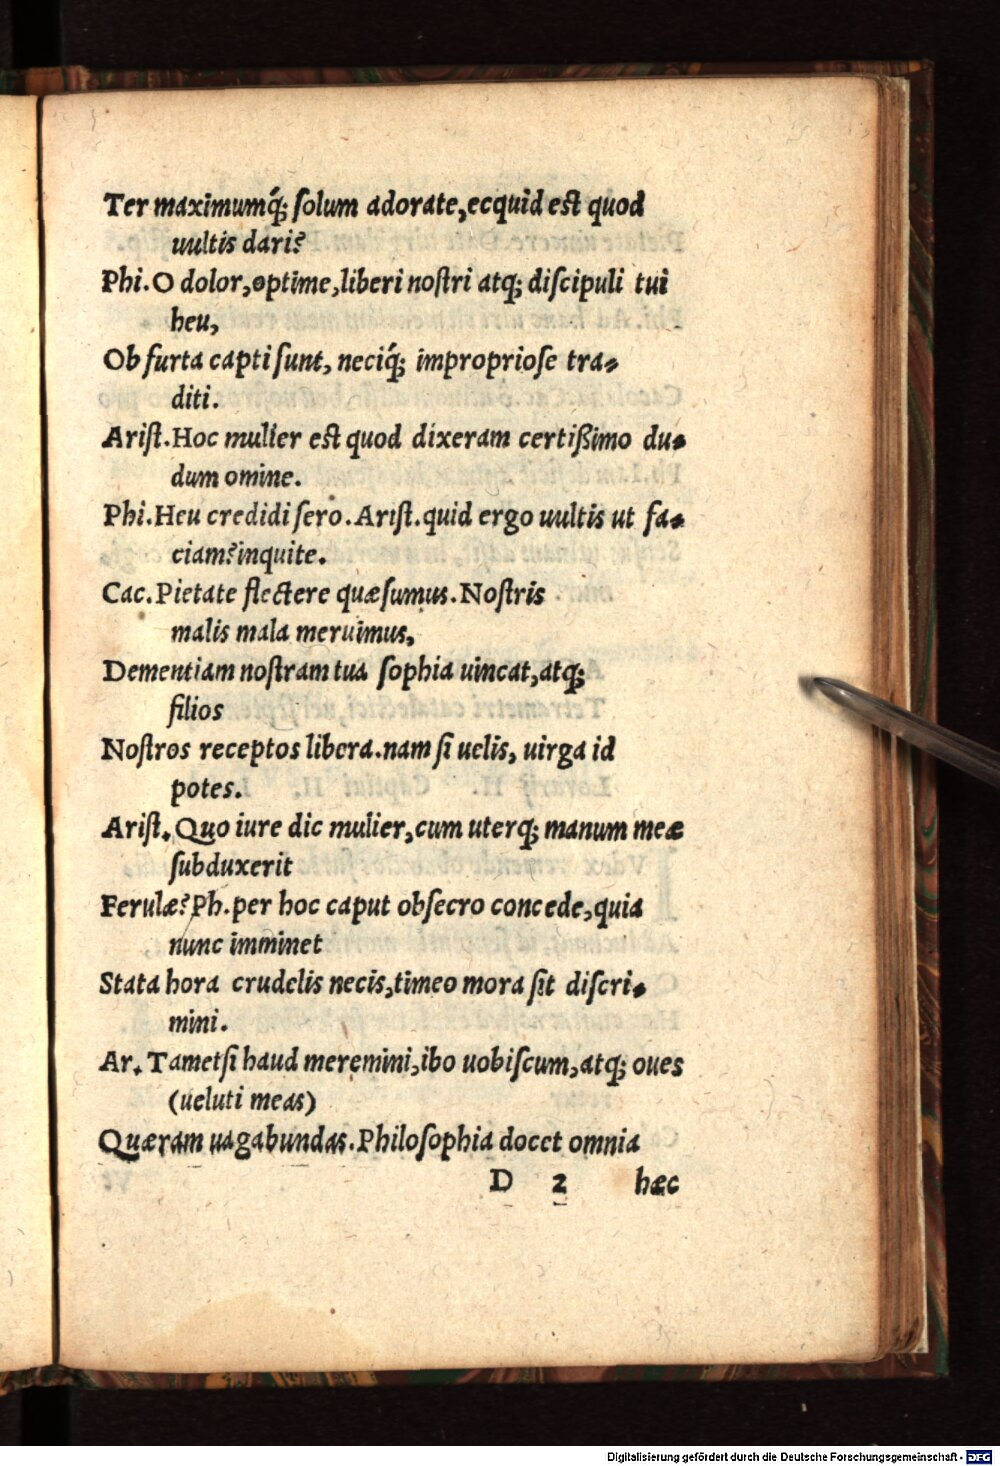 Ter maximumq́; ſolum adorate,ecquid eſt quod
uultis dari?
Phi.O dolor,optime,liberi noſtri atq; diſcipuli tui
heu,
Ob furta capti ſunt, neciq́; improprioſe tra-
diti.
Ariſt.Hoc mulier eſt quod dixeram certißimo du-
dum omine.
Phi.Heu credidi ſero.Ariſt.quid ergo uultis ut fa-
ciam?inquite.
Cac.Pietate flectere quæſumus.Noſtris
malis mala meruimus,
Dementiam noſtram tua ſophia uincat,atq;
filios
Noſtros receptos libera.nam ſi uelis, uirga id
potes.
Ariſt.Quo iure dic mulier,cum uterq; manum meæ
ſubduxerit
Ferulæ?Ph.per hoc caput obſecro concede,quia
nunc imminet
Stata hora crudelis necis,timeo mora ſit diſcri-
mini.
Ar.Tametſi haud meremini,ibo uobiſcum,atq; oues
(ueluti meas)
Quæram uagabundas.Philoſophia docet omnia
D 2 hæc
Digitalisierung gefördert durch die Deutsche Forschungsgemeinschaft - DFG